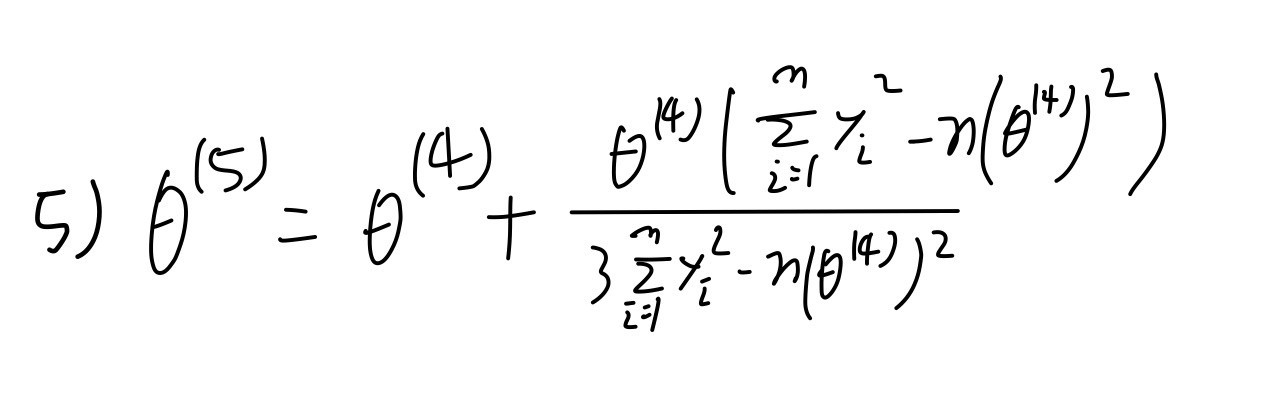 5) θ^(5) = θ^(4) + \frac{θ^(4) ( \sum_{i=1}^{n} y_i^2 - n(θ^(4))^2 )}{3 \sum_{i=1}^{n} y_i^2 - n(θ^(4))^2}